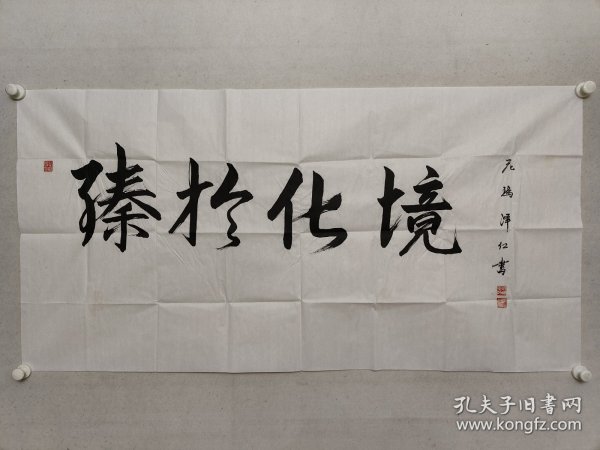 臻於化境
尼玛泽仁书
孔夫子旧书网
www.kongfz.com